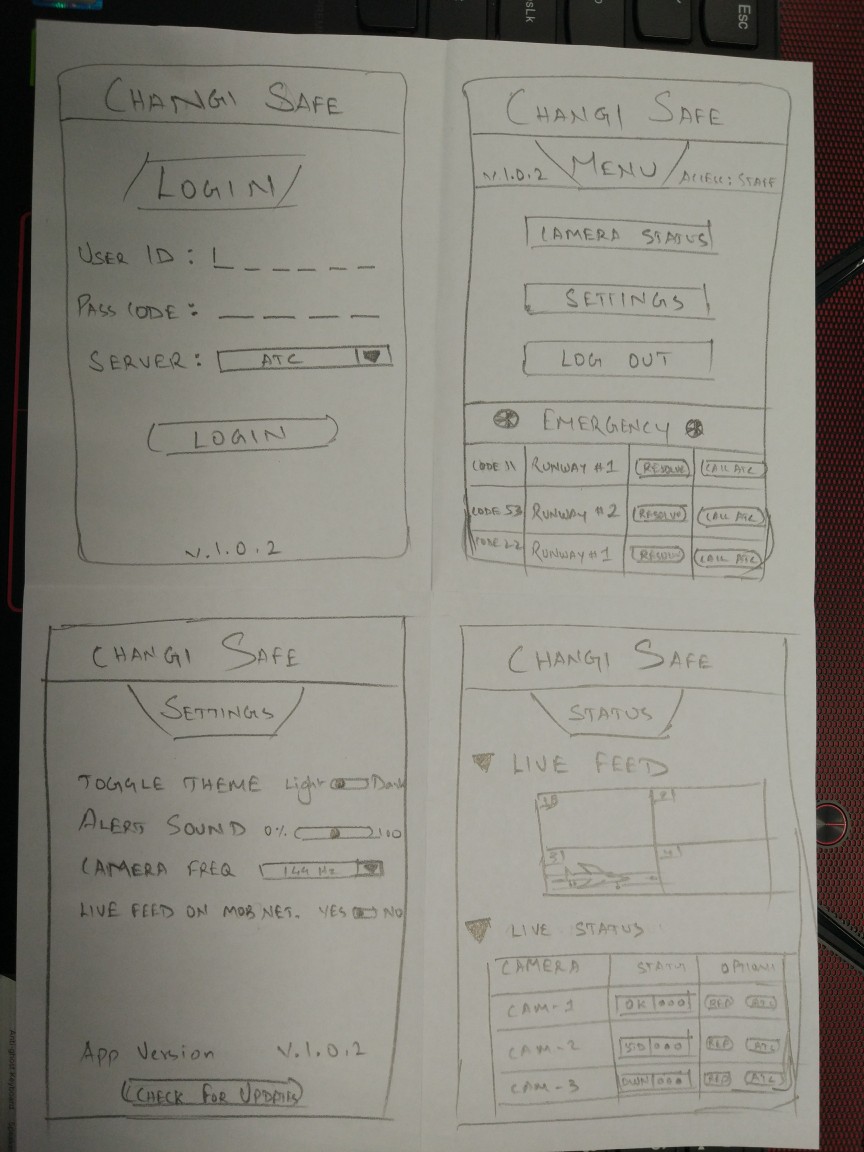 Esc
CHANGI SAFE
LOGIN
USER ID :
PASS CODE :
SERVER : ATC
LOGIN
v.1.0.2
CHANGI SAFE
v.1.0.2 MENU ACCESS : STAFF
CAMERA STATUS
SETTINGS
LOG OUT
EMERGENCY
CODE 11 RUNWAY #1 RESOLVE CALL ATC
CODE 53 RUNWAY #2 RESOLVE CALL ATC
CODE 22 RUNWAY #1 RESOLVE CALL ATC
CHANGI SAFE
SETTINGS
TOGGLE THEME Light Dark
ALERT SOUND 0% 100
CAMERA FREQ 144 Hz
LIVE FEED ON MOB NET. YES NO
App Version V.1.0.2
CHECK FOR UPDATES
CHANGI SAFE
STATUS
LIVE FEED
LIVE STATUS
CAMERA STATUS OPTIONS
CAM-1 OK REP ATC
CAM-2 REP ATC
CAM-3 DWN REP ATC